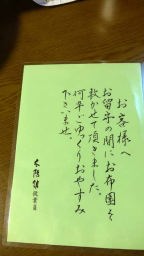 お客様へ
お留守の間にお布団を
敷かせて頂きました。
何卒ごゆっくりおやすみ
下さいませ。
従業員